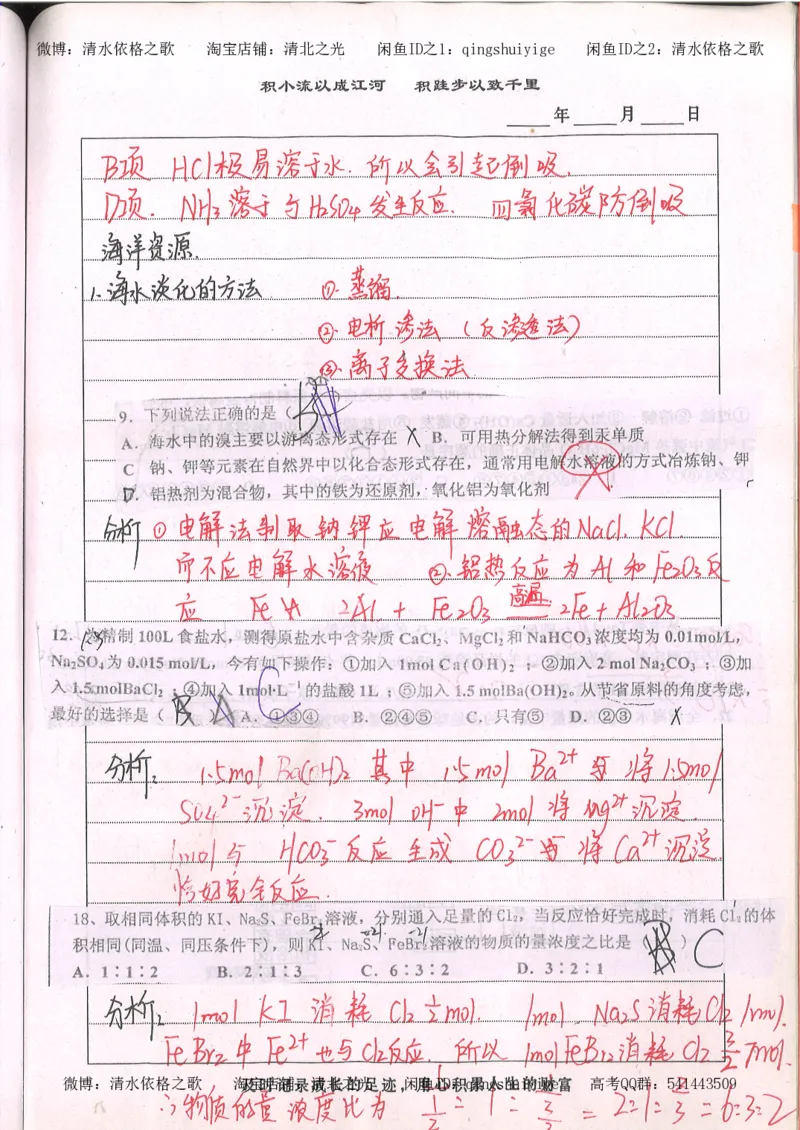 微博：清水依格之歌 淘宝店铺：清北之光 闲鱼ID之1：qingshuiyige 闲鱼ID之2：清水依格之歌
积小流以成江河 积跬步以致千里
年 月 日
B项 HCl极易溶于水. 所以会引起倒吸.
D项. NH3溶于与H2SO4发生反应. 四氯化碳防倒吸
海洋资源.
1.海水淡化的方法 ①. 蒸馏.
②. 电析渗法 (反渗透法)
③. 离子交换法
9. 下列说法正确的是( B
A. 海水中的溴主要以游离态形式存在 X B. 可用热分解法得到汞单质
C 钠、钾等元素在自然界中以化合态形式存在，通常用电解水溶液的方式冶炼钠、钾
D. 铝热剂为混合物，其中的铁为还原剂，氧化铝为氧化剂
分析 ① 电解法制取钠钾应电解熔融态的NaCl. KCl.
而不应电解水溶液 ②. 铝热反应为Al和Fe2O3反
应 2Al + Fe2O3 高温 2Fe + Al2O3
12. 为精制 100L 食盐水，测得原盐水中含杂质 CaCl2、MgCl2 和 NaHCO3 浓度均为 0.01mol/L,
Na2SO4 为 0.015 mol/L，今有如下操作：①加入 1mol Ca(OH)2 ；②加入 2 mol Na2CO3 ；③加
入 1.5molBaCl2 ；④加入 1mol·L⁻¹ 的盐酸 1L ；⑤加入 1.5 molBa(OH)2。从节省原料的角度考虑，
最好的选择是（ B ） A C A. ①③④ B. ②④⑤ C. 只有⑤ D. ②③ X
分析: 1.5mol Ba(OH)2 其中 1.5mol Ba²⁺ 将 1.5mol
SO4²⁻沉淀. 3mol OH⁻中 2mol 将 Mg²⁺沉淀.
1mol 与 HCO3⁻反应生成 CO3²⁻ 将 Ca²⁺沉淀.
恰好完全反应.
18、取相同体积的 KI、Na2S、FeBr2 溶液，分别通入足量的 Cl2，当反应恰好完成时，消耗 Cl2 的体
积相同(同温、同压条件下)，则 KI、Na2S、FeBr2 溶液的物质的量浓度之比是（ ） C
A. 1：1：2 B. 2：1：3 C. 6：3：2 D. 3：2：1
分析: 1mol KI 消耗 Cl2 ½mol. 1mol. Na2S消耗Cl2 1mol.
FeBr2中Fe²⁺也与Cl2反应. 所以 1molFeBr2消耗 Cl2 3/2 mol.
微博：清水依格之歌 高考QQ群：541443509
∴物质的量浓度比为 = 2:1:2/3 = 6:3:2